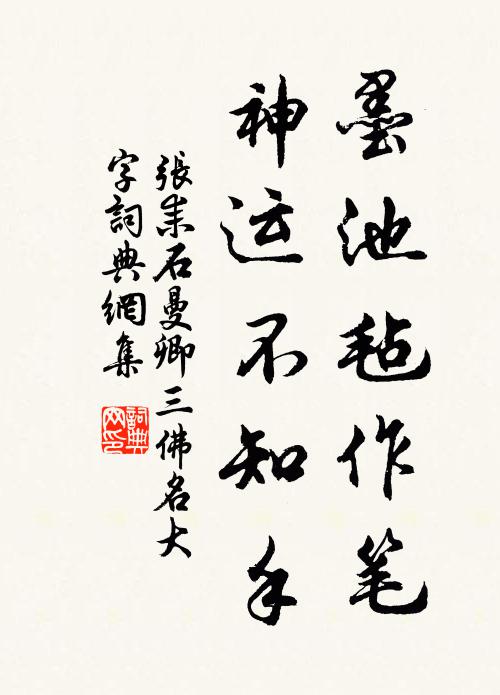 墨池毡作笔
神运不知手
張耒石曼卿三佛名大
字詞典網集
詞典网印